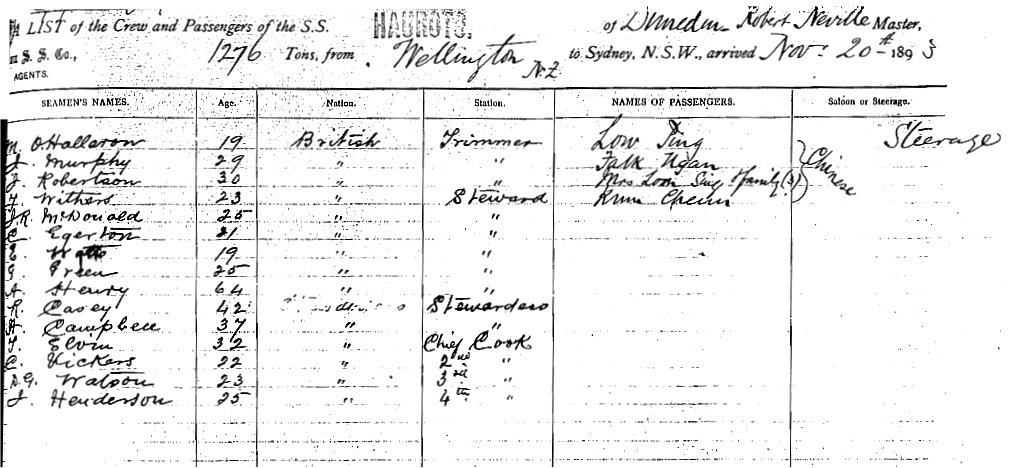 LIST of the Crew and Passengers of the S.S. HAUROTO. of Dunedin Robert Neville Master,
S. S. Co., 1276 Tons, from Wellington N.Z to Sydney, N.S.W., arrived Nov: 20th 1893
AGENTS.
SEAMEN'S NAMES. Age. Nation. Station. NAMES OF PASSENGERS. Saloon or Steerage.
M. O'Hallaron 19 British Trimmer Low Ting Steerage
J. Murphy 29 " " Falk Ugan Chinese
J. Robertson 30 " " Mrs Loon Sing & family (3)
Withers 23 " Steward
J.R. McDonald 25 " "
C. Egerton 21 " "
Watts 19 " "
G. Green 25 " "
A. Henry 64 " "
R. Casey 42 Stewardess
H. Campbell 37 " "
Elvin 32 " Chief Cook
C. Vickers 22 " 2nd "
D.G. Watson 23 " 3rd "
J. Henderson 25 " 4th "